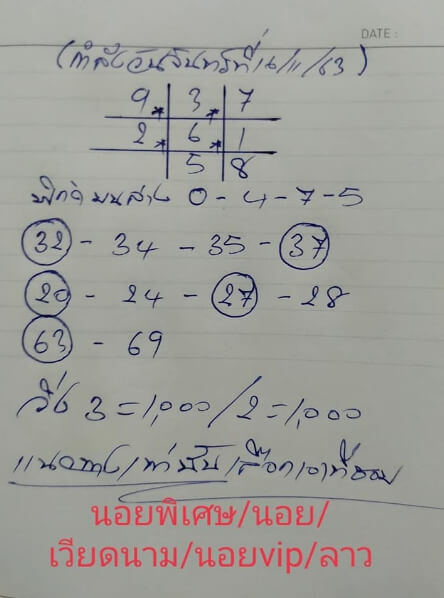 DATE :
(กำลังวันจันทร์ที่ 16/11/63)
9 3 7
2 6 1
5 8
0 - 4 - 7 - 5
32 - 34 - 35 - 37
20 - 24 - 27 - 28
63 - 69
วิ่ง 3 = 1,000 / 2 = 1,000
แนวทางเท่านั้น เลือกเอาที่ชอบ
นอยพิเศษ/นอย/
เวียดนาม/นอยvip/ลาว